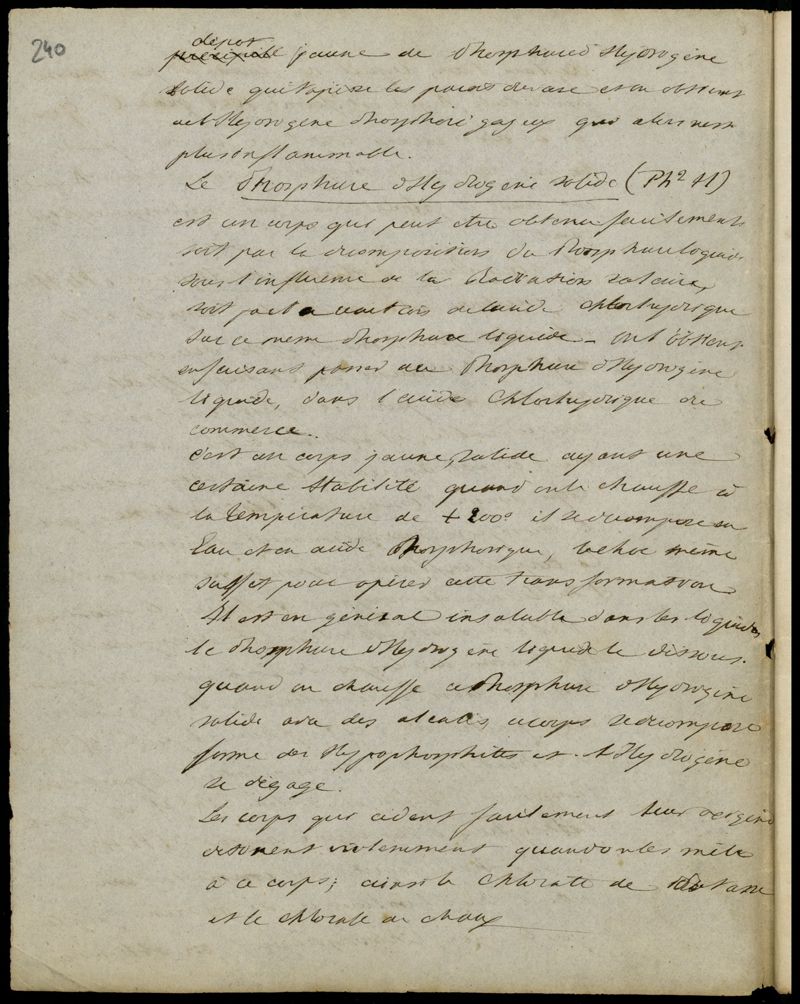 240
dépot
précipité jaune de Phosphure d'Hydrogène
solide qui tapisse les parois du vase et on obtient
de l'Hydrogène Phosphoré gazeux qui alors n'est
plus inflammable.
Le Phosphure d'Hydrogène solide (Ph² H)
est un corps qui peut etre obtenu facilement
soit par la décomposition du Phosphure liquide
sous l'influence de la Radiation solaire,
soit par l'action de l'acide chlorhydrique
sur ce meme Phosphure liquide _ on l'obtient
en faisant passer du Phosphure d'Hydrogène
liquide, dans l'acide chlorhydrique du
commerce.
C'est un corps jaune, solide ayant une
certaine stabilité quand on le chauffe à
la température de +200° il se décompose en
Eau et en acide Phosphorique, le choc même
suffit pour opérer cette transformation
Il est en général insoluble dans les liquides
le Phosphure d'Hydrogène liquide le dissous.
quand on chauffe ce Phosphure d'Hydrogène
solide avec des alcalis, ce corps se décompose
forme des Hypophosphittes et l'Hydrogène
se dégage.
Les corps qui cèdent facilement leur oxigène
détonent violemment quand on les mêle
à ce corps; ainsi le chlorate de Potasse
et le chlorate de chaux